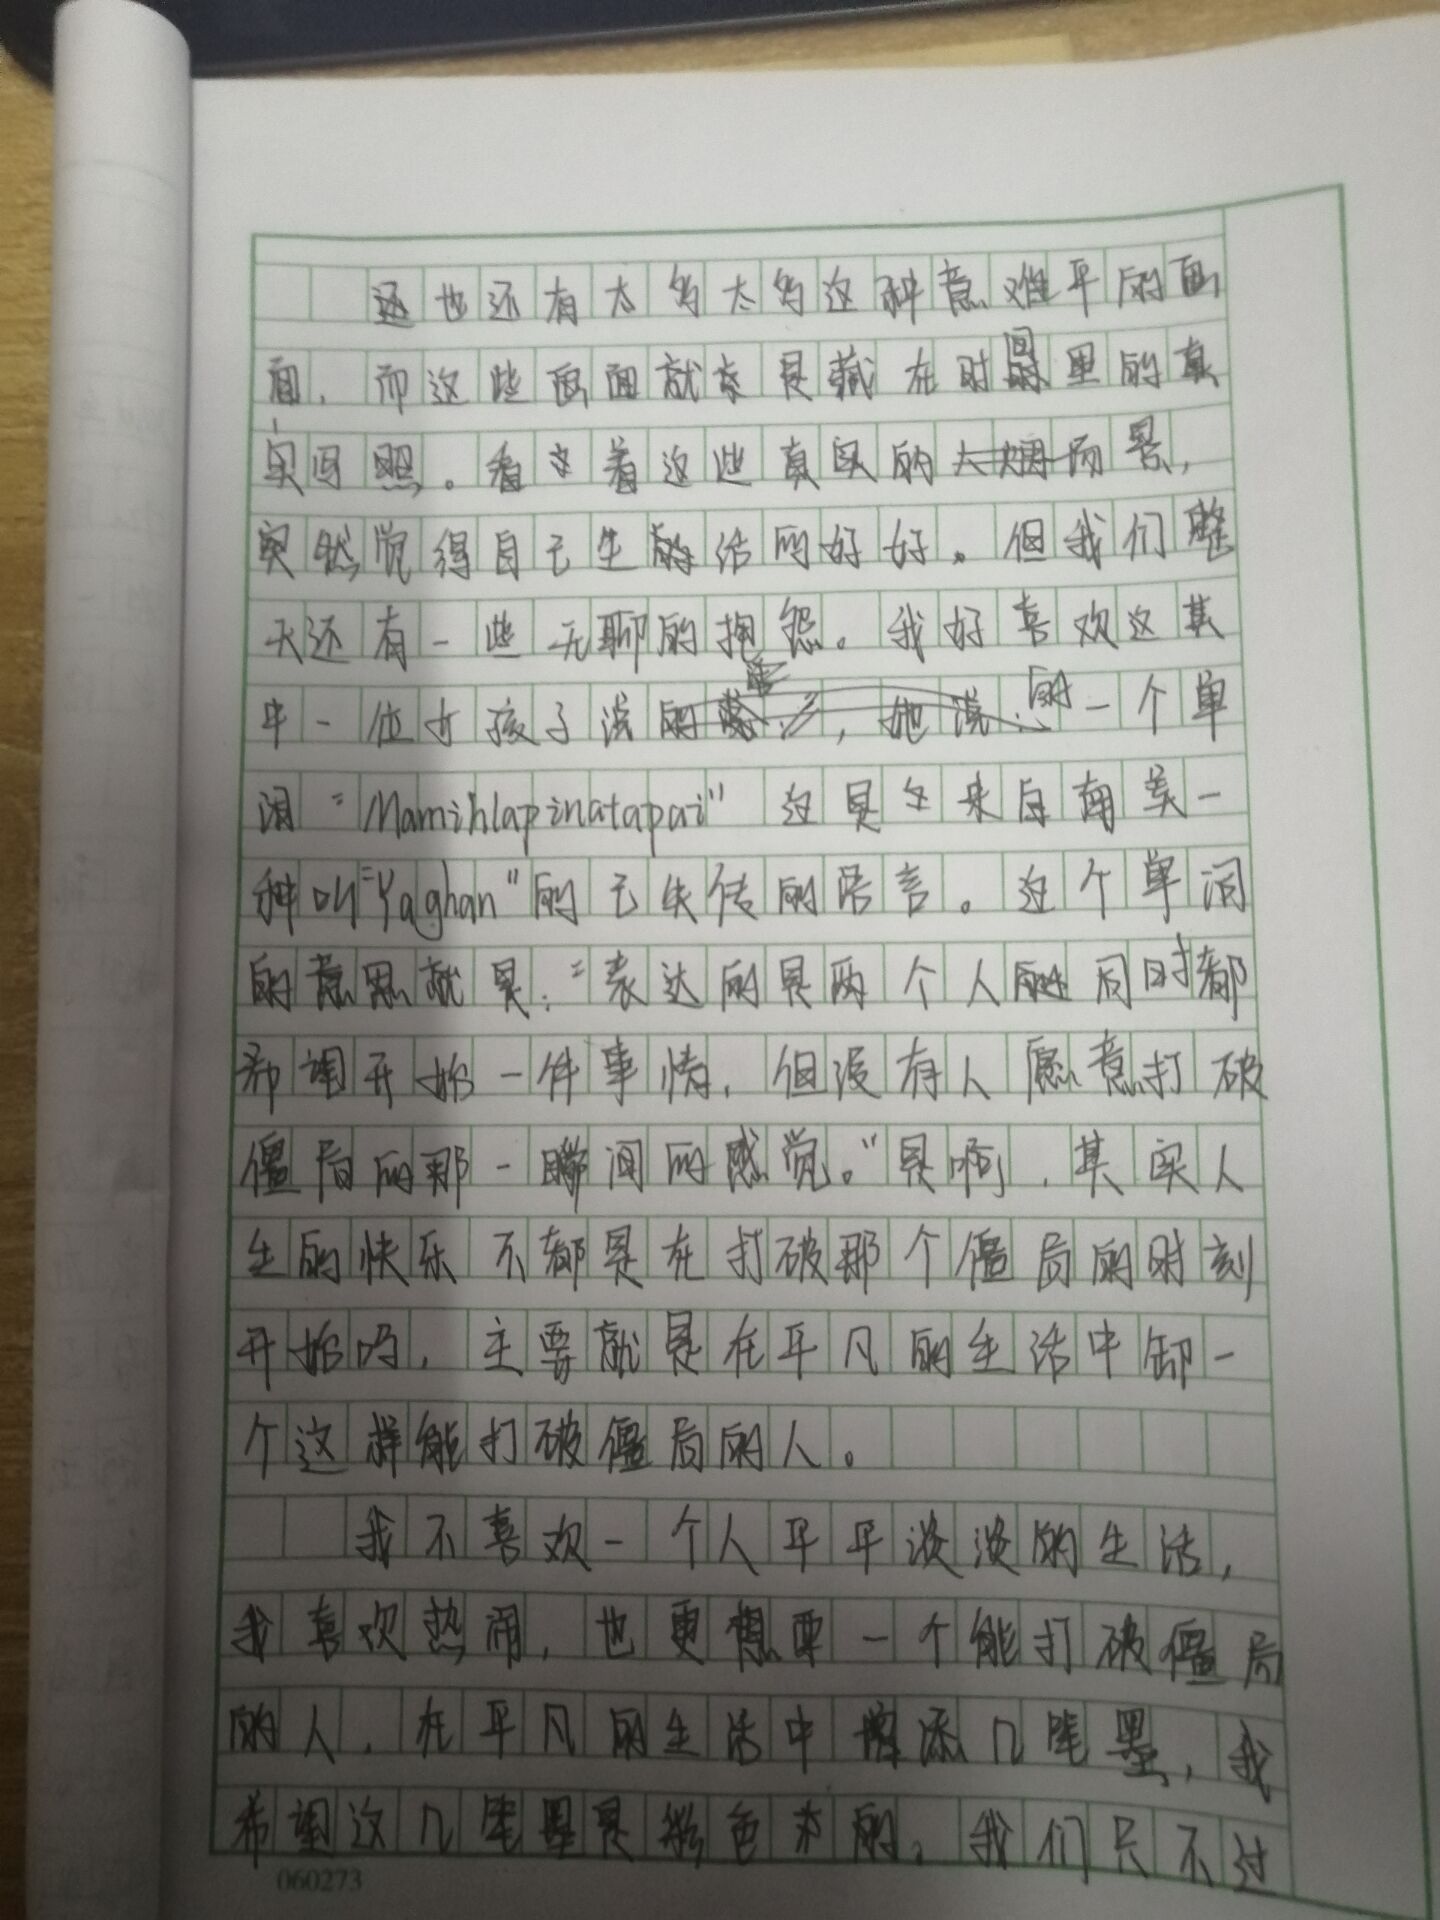 还也还有太多太多这种意难平的画
面，而这些画面就是藏在时间里的真
实写照。看着这些真实的场景，
突然觉得自己生活的好好。但我们整
天还有一些无聊的抱怨。我好喜欢这其
中一位女孩子说的，她说的一个单
词“Mamihlapinatapai”这是来自南美一
种叫“Yaghan”的已失传的语言。这个单词
的意思就是：“表达的是两个人同时都
希望开始一件事情，但没有人愿意打破
僵局的那一瞬间的感觉。”是啊，其实人
生的快乐不都是在打破那个僵局的时刻
开始吗，主要就是在平凡的生活中卸一
个这样能打破僵局的人。
我不喜欢一个人平平淡淡的生活，
我喜欢热闹，也更想要一个能打破僵局
的人，在平凡的生活中增添几笔墨，我
希望这几笔墨是彩色的，我们只不过
060273